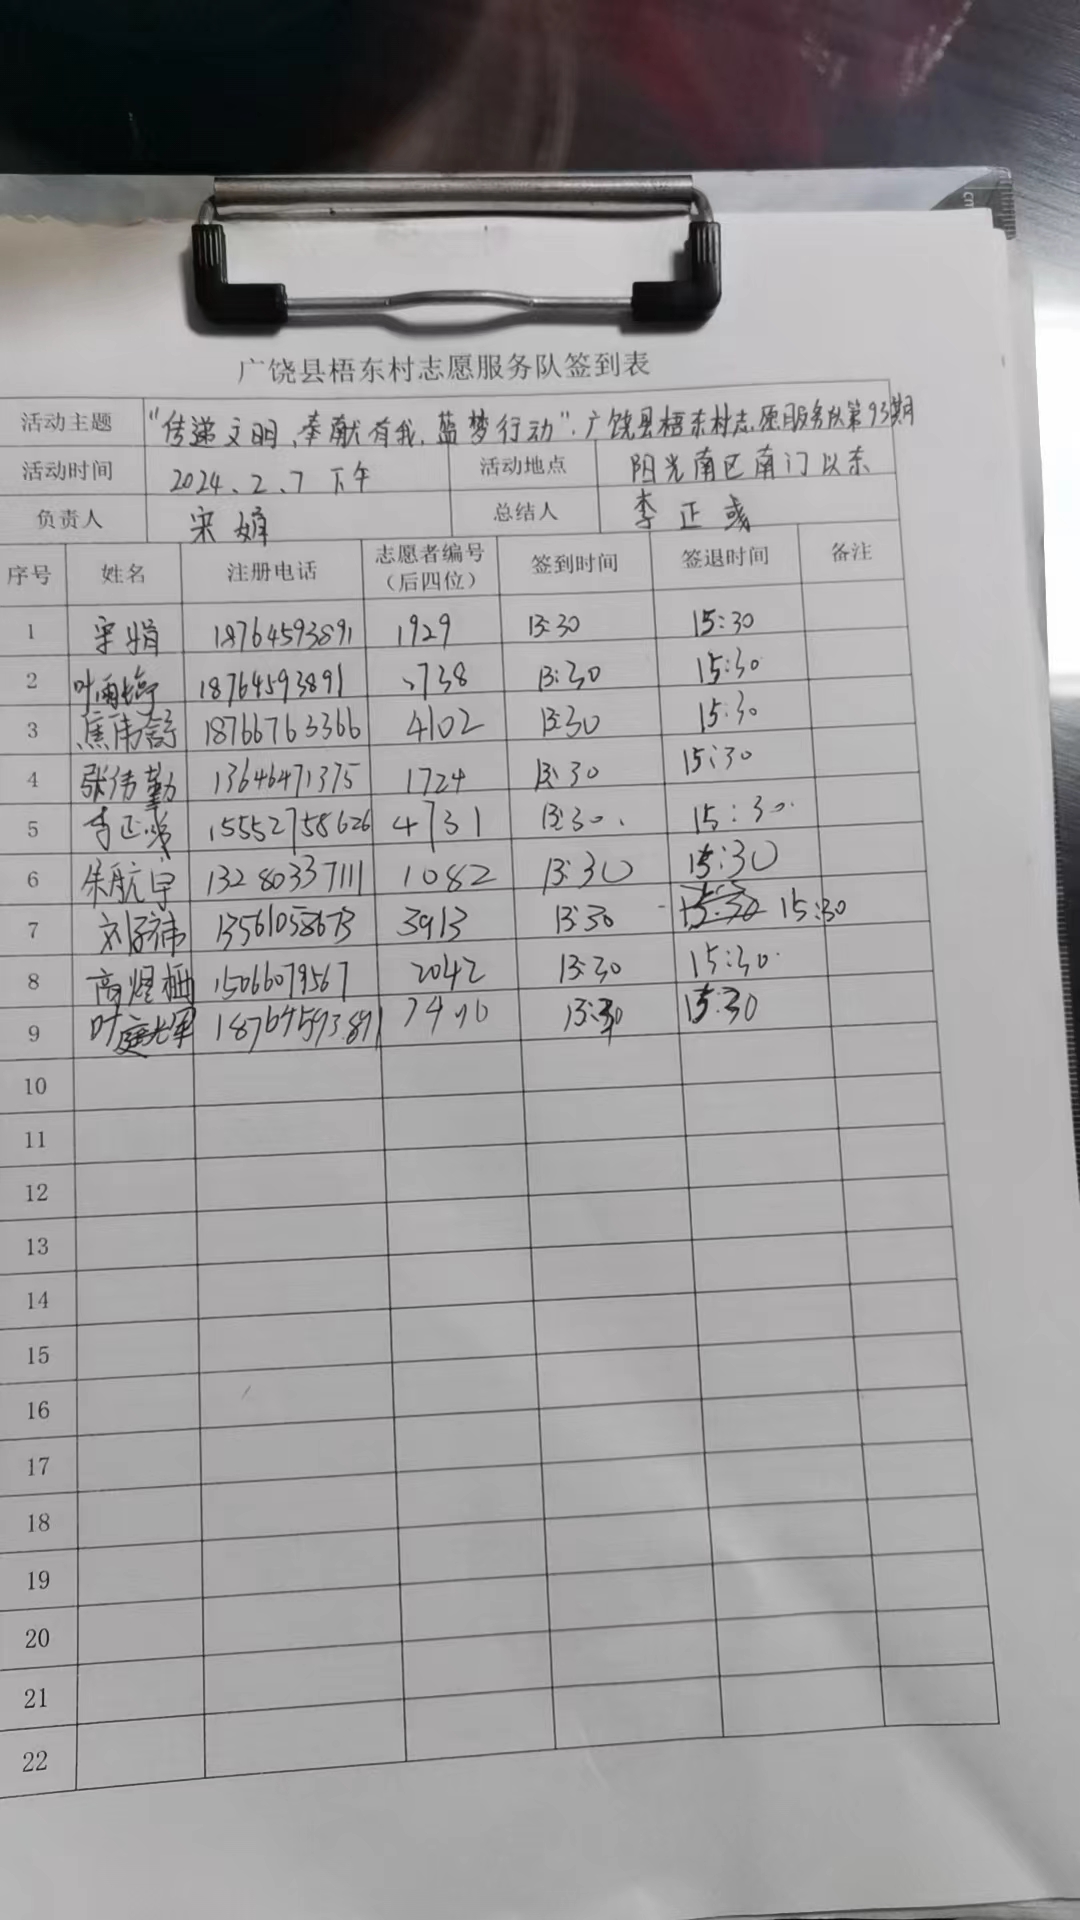 广饶县梧东村志愿服务队签到表
活动主题 "传递文明、奉献有我,蓝梦行动".广饶县梧东村志愿服务队第93期
活动时间 2024、2、7 下午 活动地点 阳光南区南门以东
负责人 宋娟 总结人 李正彧
序号 姓名 注册电话 志愿者编号(后四位) 签到时间 签退时间 备注
1 宋娟 18764593891 1929 13:30 15:30
2 叶雨 18764593891 738 13:30 15:30
3 焦伟舒 18766763366 4102 13:30 15:30
4 张倍勤 13646471375 1724 13:30 15:30
5 李正彧 15552758626 4731 13:30 15:30
6 朱航宇 13280337111 1082 13:30 15:30
7 刘 13561058673 3913 13:30 15:30 15:30
8 高煜栖 15066079567 2042 13:30 15:30
9 叶庭军 18764593891 13:30 15:30
10
11
12
13
14
15
16
17
18
19
20
21
22
cm